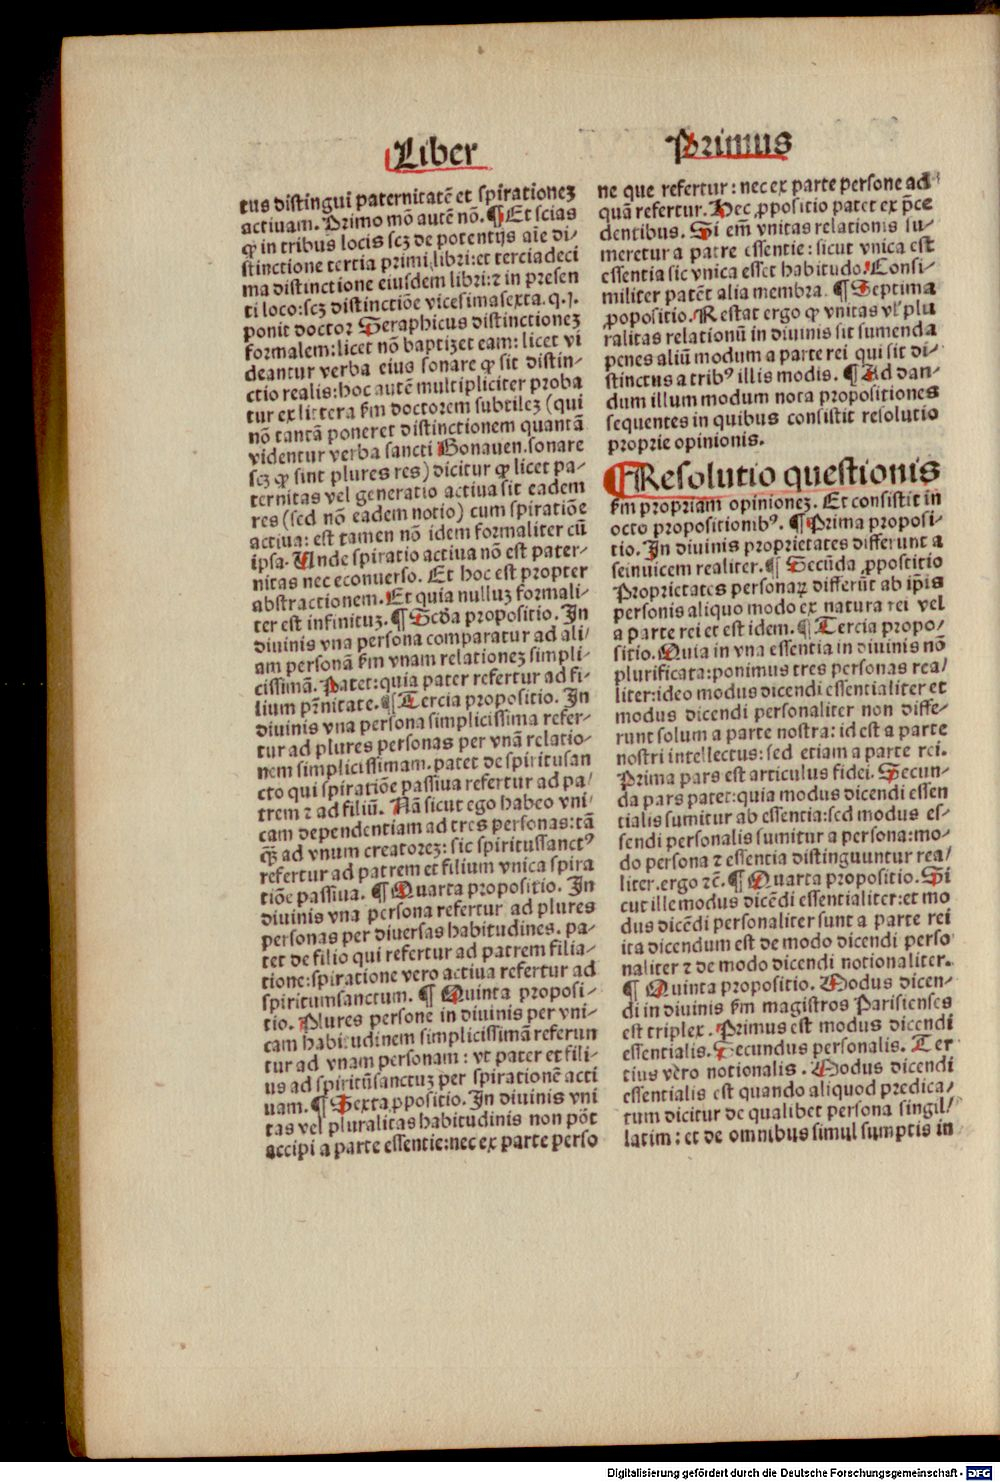 Liber
Primus
tus distingui paternitatē et spirationeꝫ
actiuam. Primo mō autē nō. ¶ Et scias
ꝙ in tribus locis scꝫ de potentijs aīe di-
stinctione tertia primi libri: et terciadeci
ma distinctione eiusdem libri: ⁊ in presen
ti loco: scꝫ distinctiōe vicesimasexta. q. j.
ponit doctor Seraphicus distinctioneꝫ
formalem: licet nō baptizet eam: licet vi
deantur verba eius sonare ꝙ sit distin-
ctio realis: hoc autē multipliciter proba
tur ex littera ẜm doctorem subtileꝫ (qui
nō tantā poneret distinctionem quantā
videntur verba sancti Bonauen. sonare
scꝫ ꝙ sint plures res) dicitur ꝙ licet pa-
ternitas vel generatio actiua sit eadem
res (sed nō eadem notio) cum spiratiōe
actiua: est tamen nō idem formaliter cū
ipsa. Unde spiratio actiua nō est pater-
nitas nec econuerso. Et hoc est propter
abstractionem. Et quia nulluꝫ formali-
ter est infinituꝫ. ¶ Scd̄a propositio. In
diuinis vna persona comparatur ad ali-
am personā ẜm vnam relationeꝫ simpli-
cissimā. Patet: quia pater refertur ad fi-
lium pr̄nitate. ¶ Tercia propositio. In
diuinis vna persona simplicissima refer-
tur ad plures personas per vnā relatio-
nem simplicissimam. patet de spiritusan
cto qui spiratiōe passiua refertur ad pa-
trem ⁊ ad filiū. Nā sicut ego habeo vni-
cam dependentiam ad tres personas: tā
ꝙ̄ ad vnum creatoreꝫ: sic spiritussanctꝰ
refertur ad patrem et filium vnica spira
tiōe passiua. ¶ Quarta propositio. In
diuinis vna persona refertur ad plures
personas per diuersas habitudines. pa-
tet de filio qui refertur ad patrem filia-
tione: spiratione vero actiua refertur ad
spiritumsanctum. ¶ Quinta proposi-
tio. Plures persone in diuinis per vni-
cam habitudinem simplicissimā referun
tur ad vnam personam: vt pater et fili-
us ad spiritūsanctuꝫ per spirationē acti
uam. ¶ Sexta ꝓpositio. In diuinis vni
tas vel pluralitas habitudinis non pōt
accipi a parte essentie: nec ex parte perso
ne que refertur: nec ex parte persone ad
quā refertur. Hec ꝓpositio patet ex p̄ce
dentibus. Si em̄ vnitas relationis su-
meretur a patre essentie: sicut vnica est
essentia sic vnica esset habitudo. Consi-
militer patēt alia membra. ¶ Septima
ꝓpopositio. Restat ergo ꝙ vnitas vl̓ plu
ralitas relationū in diuinis sit sumenda
penes aliū modum a parte rei qui sit di-
stinctus a tribꝰ illis modis. ¶ Ad dan-
dum illum modum nota propositiones
sequentes in quibus consistit resolutio
proprie opinionis.
¶ Resolutio questionis
ẜm propriam opinioneꝫ. Et consistit in
octo propositionibꝰ. ¶ Prima proposi-
tio. In diuinis proprietates differunt a
seinuicem realiter. ¶ Secūda ꝓpostitio
Proprietates personaꝝ differūt ab ip̄is
personis aliquo modo ex natura rei vel
a parte rei et est idem. ¶ Tercia propo-
sitio. Quia in vna essentia in diuinis nō
plurificata: ponimus tres personas rea-
liter: ideo modus dicendi essentialiter et
modus dicendi personaliter non diffe-
runt solum a parte nostra: id est a parte
nostri intellectus: sed etiam a parte rei.
Prima pars est articulus fidei. Secun-
da pars patet: quia modus dicendi essen
tialis sumitur ab essentia: sed modus es-
sendi personalis sumitur a persona: mo-
do persona ⁊ essentia distinguuntur rea-
liter. ergo ⁊c̄. ¶ Quarta propositio. Si
cut ille modus dicēdi essentialiter: et mo
dus dicēdi personaliter sunt a parte rei
ita dicendum est de modo dicendi perso
naliter ⁊ de modo dicendi notionaliter.
¶ Quinta propositio. Modus dicen-
di in diuinis ẜm magistros Parisienses
est triplex. Primus est modus dicendi
essentialis. Secundus personalis. Ter
tius vero notionalis. Modus dicendi
essentialis est quando aliquod predica-
tum dicitur de qualibet persona singil-
latim: et de omnibus simul sumptis in
Digitalisierung gefördert durch die Deutsche Forschungsgemeinschaft - DFG